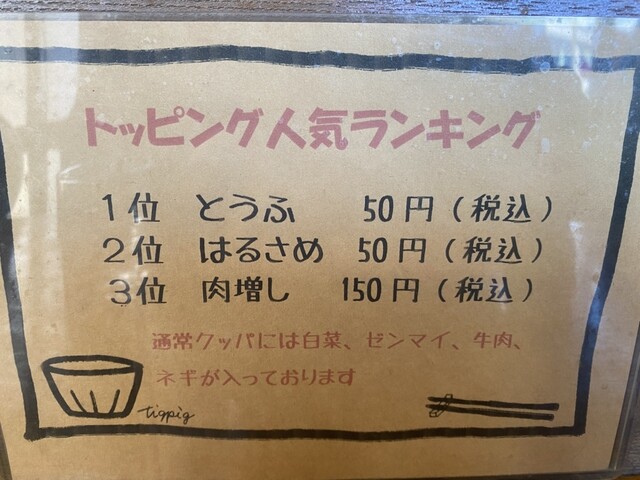 トッピング人気ランキング
1位 とうふ 50円(税込)
2位 はるさめ 50円(税込)
3位 肉増し 150円(税込)
通常クッパには白菜、ゼンマイ、牛肉、
ネギが入っております
tigpig